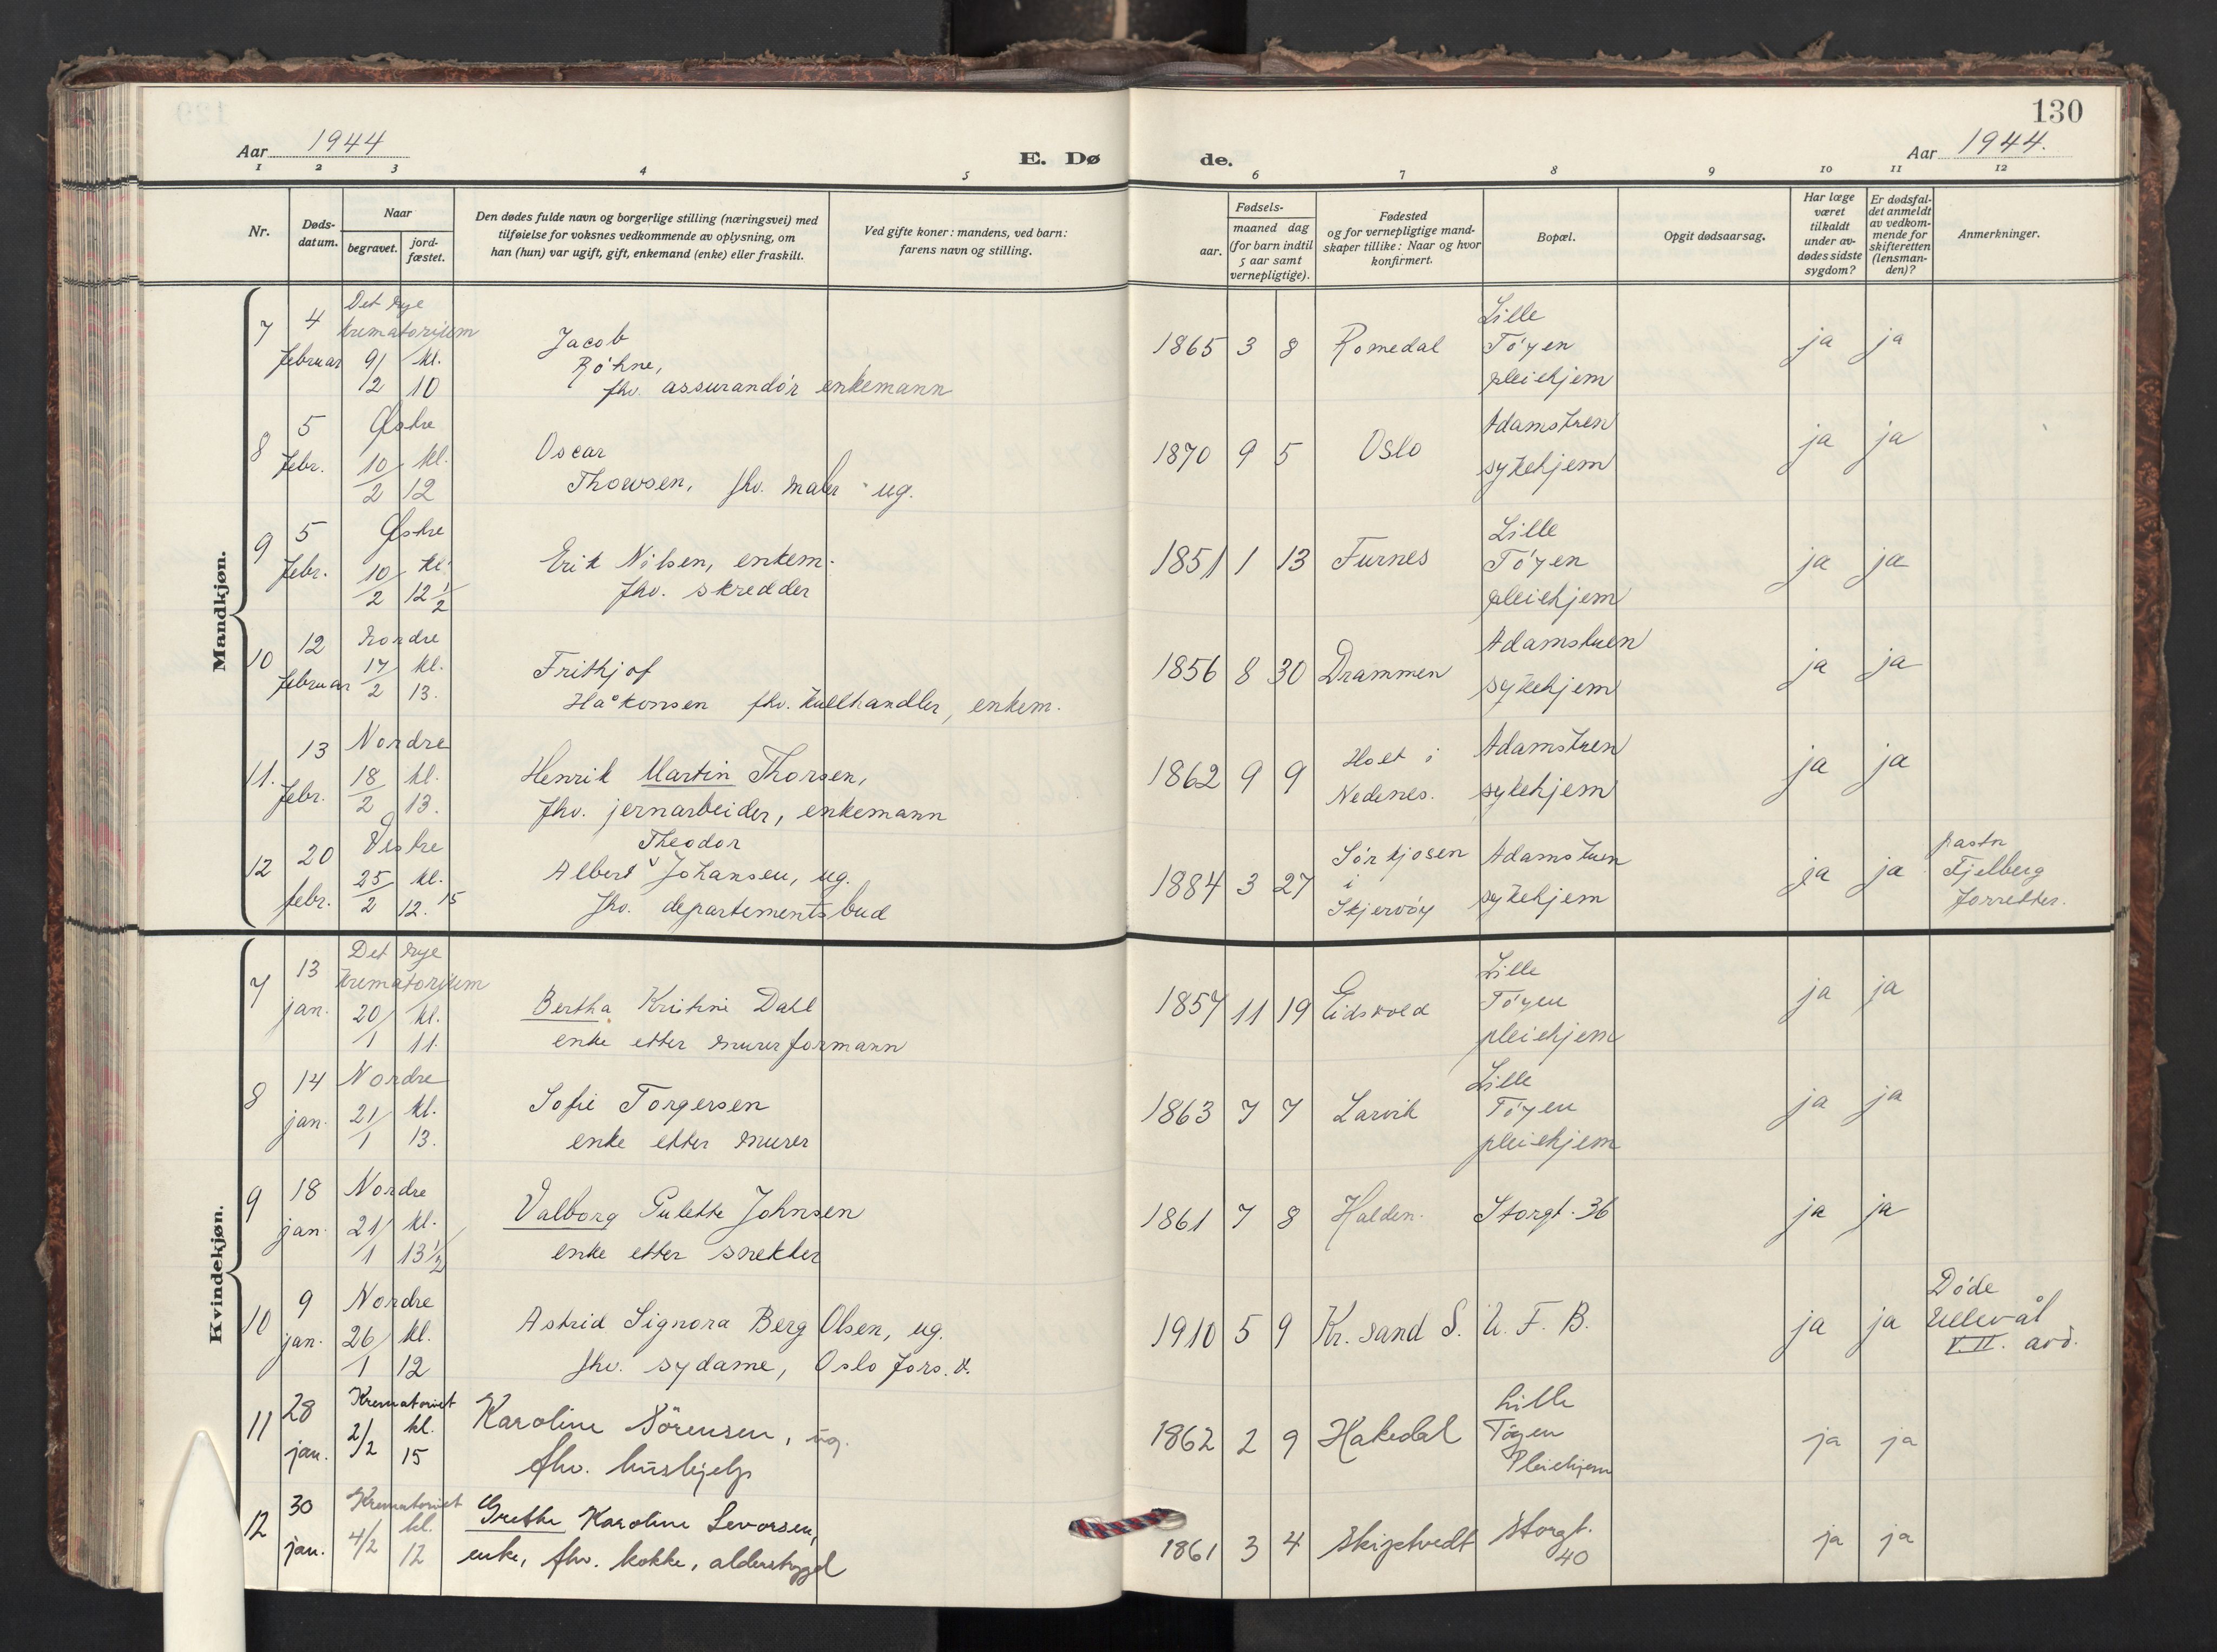 130
Aar 1944
E. Dø de.
Aar 1944.
1 2 3 4 5 6 7 8 9 10 11 12
Nr.
Døds-
datum.
Naar
begravet.
jord-
fæstet.
Den dødes fulde navn og borgerlige stilling (næringsvei) med
tilføielse for voksnes vedkommende av oplysning, om
han (hun) var ugift, gift, enkemand (enke) eller fraskilt.
Ved gifte koner: mandens, ved barn:
farens navn og stilling.
Fødsels-
aar.
maaned dag
(for barn indtil
5 aar samt
vernepligtige).
Fødested
og for vernepligtige mand-
skaper tillike: Naar og hvor
konfirmert.
Bopæl.
Opgit dødsaarsag.
Har læge
været
tilkaldt
under av-
dødes sidste
sygdom?
Er dødsfal-
det anmeldt
av vedkom-
mende for
skifteretten
(lensman-
den)?
Anmerkninger.
Mandkjøn.
7
4
februar
Det nye
krematorium
9/2 kl. 10
Jacob
Røhne,
fhv. assurandør enkemann
1865 3 8 Romedal
Lille
Tøyen
pleiehjem
ja ja
8
5
febr.
Østre
10/2 kl. 12
Oscar
Thowsen, fhv. maler ug.
1870 9 5 Oslo
Adamstuen
sykehjem
ja ja
9
5
febr.
Østre
10/2 kl. 12 1/2
Erik Nilsen, enkem.
fhv. skredder
1851 1 13 Furnes
Lille
Tøyen
pleiehjem
ja ja
10
12
februar
Nordre
17/2 kl. 13.
Frithjof
Håkonsen fhv. kullhandler, enkem.
1856 8 30 Drammen
Adamstuen
sykehjem
ja ja
11.
13
febr.
Nordre
18/2 kl. 13.
Henrik Martin Thorsen,
fhv. jernarbeider, enkemann
1862 9 9
Holt i
Nedenes.
Adamstuen
sykehjem
ja ja
12
20
febr.
Vestre
25/2 kl. 12.15
Theodor
Albert Johansen, ug.
fhv. departementsbud
1884 3 27
Sørkjosen
i
Skjervøy
Adamstuen
sykehjem
ja ja
pastor
Fjelberg
forretter.
Kvindekjøn.
7
13
jan.
Det nye
krematorium
20/1 kl. 11.
Bertha Kristine Dahl
enke etter murerformann
1857 11 19 Eidsvold
Lille
Tøyen
pleiehjem
ja ja
8
14
jan.
Nordre
21/1 kl. 13.
Sofie Torgersen
enke etter murer
1863 7 7 Larvik
Lille
Tøyen
pleiehjem
ja ja
9
18
jan.
Nordre
21/1 kl. 13 1/2
Valborg Julette Johnsen
enke etter snekker
1861 7 8 Halden. Storgt. 36
ja ja
10
9
jan.
Nordre
26/1 kl. 12
Astrid Signora Berg Olsen, ug.
fhv. sydame, Oslo fors.v.
1910 5 9 Kr. sand S. U. F. B.
ja ja
Døde
Ullevål
V.II. avd.
11
28
jan.
Krematoriet
2/2 kl. 15
Karoline Sørensen, ug.
fhv. hushjelp
1862 2 9 Hakedal
Lille
Tøyen
Pleiehjem
ja ja
12
30
jan.
Krematoriet
4/2 kl. 12
Grethe Karoline Levorsen,
enke, fhv. kokke, alderstrygd
1861 3 4 Skiptvedt
Storgt.
40
ja ja